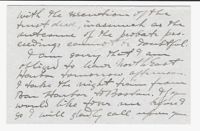 with the execution of the
trust deed, inasmuch as the
outcome of the probate pro-
ceedings cannot be doubtful.
I am sorry that I am
obliged to leave North East
Harbor tomorrow afternoon.
I take the night train from
Bar Harbor to Boston. If you
would like to see me before I
go I will gladly call upon you